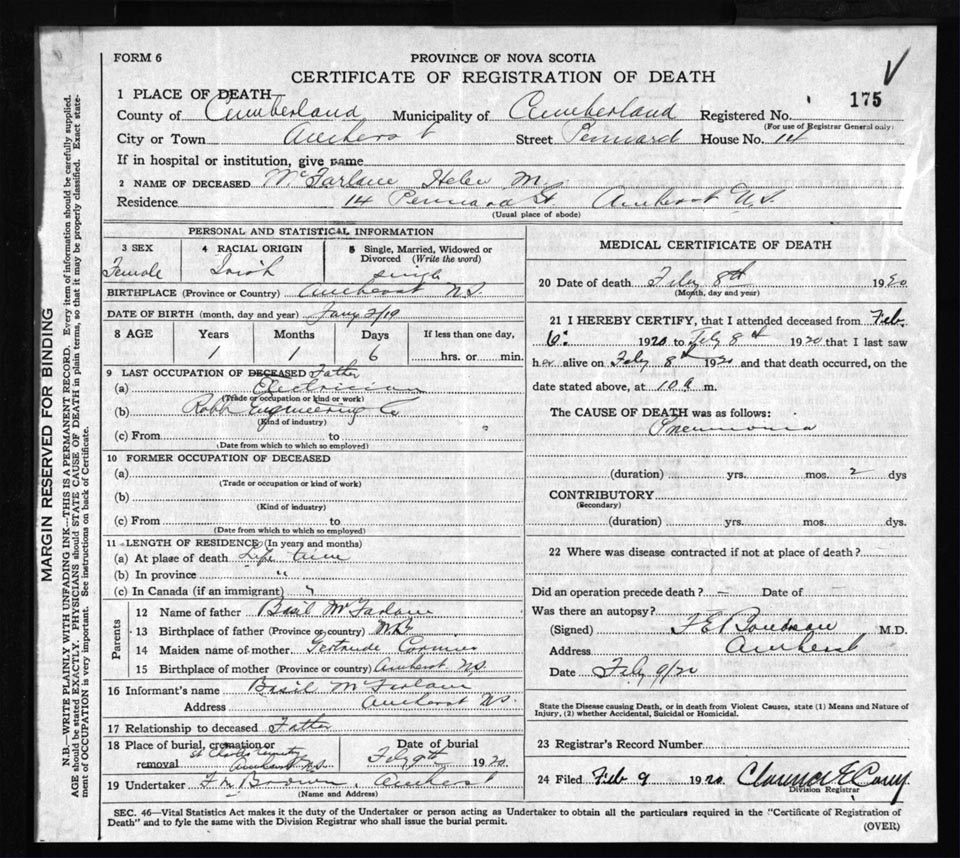 FORM 6
PROVINCE OF NOVA SCOTIA
CERTIFICATE OF REGISTRATION OF DEATH
175
1 PLACE OF DEATH
County of Cumberland Municipality of Cumberland Registered No.
(For use of Registrar General only)
City or Town Amherst Street Pennard House No. 14
If in hospital or institution, give name
2 NAME OF DECEASED McFarlane Helen M.
Residence 14 Pennard St Amherst N.S.
(Usual place of abode)
PERSONAL AND STATISTICAL INFORMATION
3 SEX 4 RACIAL ORIGIN 5 Single, Married, Widowed or Divorced (Write the word)
Female Irish single
BIRTHPLACE (Province or Country) Amherst N.S.
DATE OF BIRTH (month, day and year) Jany 2/19
8 AGE Years Months Days If less than one day,
1 1 6 hrs. or min.
9 LAST OCCUPATION OF DECEASED Father
(a) Electrician
(Trade or occupation or kind of work)
(b) Robb Engineering Co
(Kind of industry)
(c) From to
(Date from which to which so employed)
10 FORMER OCCUPATION OF DECEASED
(a)
(Trade or occupation or kind of work)
(b)
(Kind of industry)
(c) From to
(Date from which to which so employed)
11 LENGTH OF RESIDENCE (In years and months)
(a) At place of death Life time
(b) In province " "
(c) In Canada (if an immigrant) "
Parents
12 Name of father Basil McFarlane
13 Birthplace of father (Province or country) N.B.
14 Maiden name of mother Gertrude
15 Birthplace of mother (Province or country) Amherst N.S.
16 Informant's name Basil McFarlane
Address Amherst N.S.
17 Relationship to deceased Father
18 Place of burial, cremation or removal St Charles Cemetery Amherst N.S. Date of burial Feby 9th 1920
19 Undertaker Amherst
(Name and Address)
MEDICAL CERTIFICATE OF DEATH
20 Date of death Feby 8th 1920
(Month, day and year)
21 I HEREBY CERTIFY, that I attended deceased from Feb.
6: 1920 to Feby 8th 1920 that I last saw
her alive on Feby 8th 1920 and that death occurred, on the
date stated above, at 10 a m.
The CAUSE OF DEATH was as follows:
Pneumonia
(duration) yrs. mos. 2 dys
CONTRIBUTORY
(Secondary)
(duration) yrs. mos. dys.
22 Where was disease contracted if not at place of death?
Did an operation precede death? — Date of
Was there an autopsy?
(Signed) M.D.
Address Amherst
Date Feby 9/20
State the Disease causing Death, or in death from Violent Causes, state (1) Means and Nature of
Injury, (2) whether Accidental, Suicidal or Homicidal.
23 Registrar's Record Number
24 Filed Feb 9 1920 Clarence E
Division Registrar
SEC. 46—Vital Statistics Act makes it the duty of the Undertaker or person acting as Undertaker to obtain all the particulars required in the "Certificate of Registration of
Death" and to fyle the same with the Division Registrar who shall issue the burial permit.
(OVER)
MARGIN RESERVED FOR BINDING
N.B.—WRITE PLAINLY WITH UNFADING INK—THIS IS A PERMANENT RECORD. Every item of information should be carefully supplied.
AGE should be stated EXACTLY. PHYSICIANS should STATE CAUSE OF DEATH in plain terms, so that it may be properly classified. Exact state-
ment of OCCUPATION is very important. See instructions on back of Certificate.